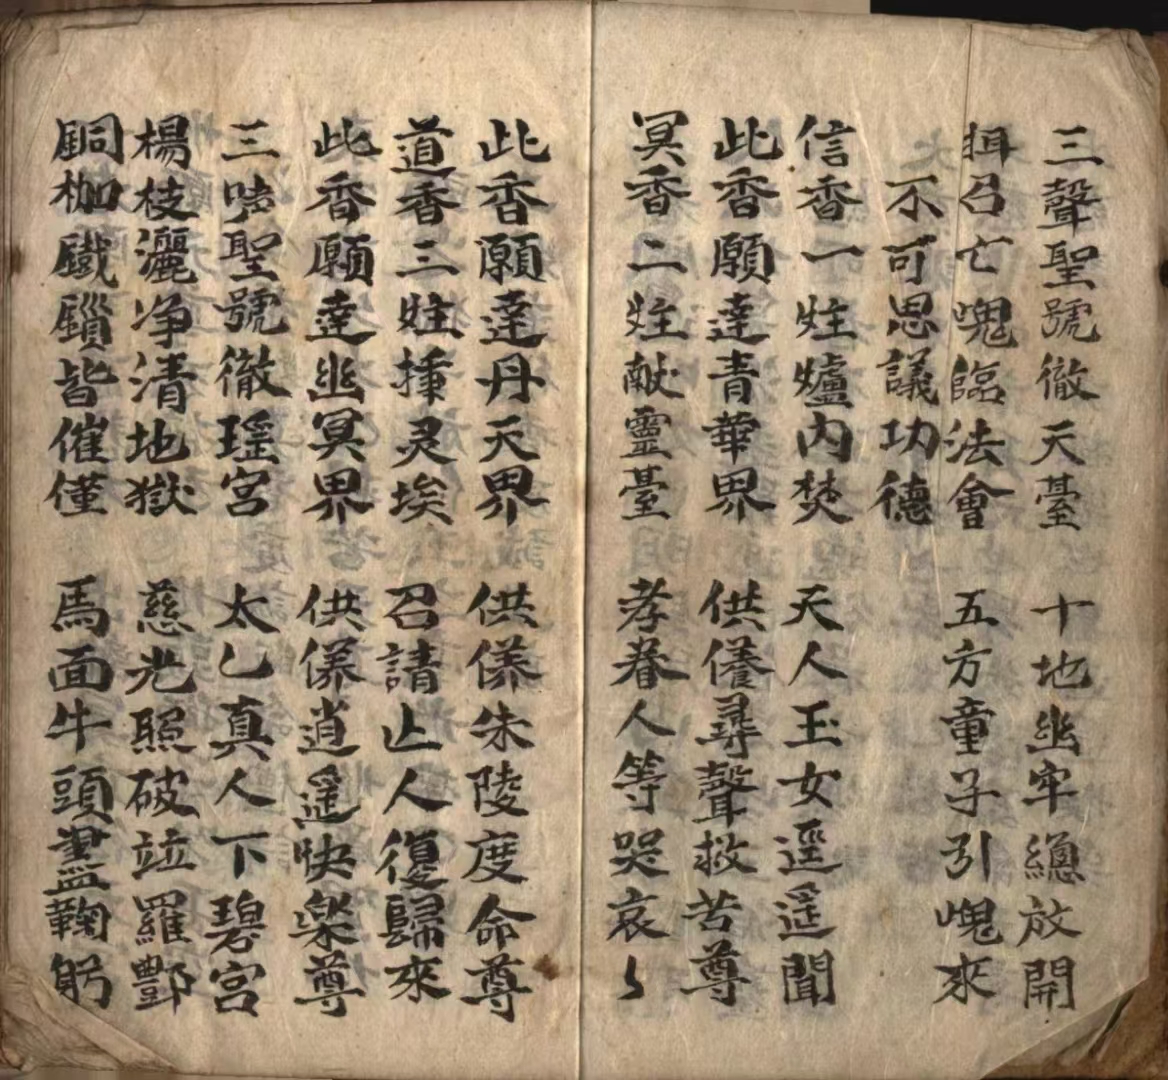 三聲聖號徹天臺 十地幽牢總放開
召亡魂臨法會 五方童子引魂來
不可思議功德
信香一炷爐内焚 天人玉女遥遥聞
此香願達青華界 供養尋聲救苦尊
冥香二炷献靈臺 孝眷人等哭哀〻
此香願達丹天界 供养朱陵度命尊
道香三炷捶灵埃 召請亡人復歸來
此香願達幽冥界 供养逍遥快樂尊
三聖號徹瑶宮 太乙真人下碧宮
楊枝灑净清地獄 慈光照破竝羅酆
銅枷鐵鎖皆催僅 馬面牛頭盡鞠躬